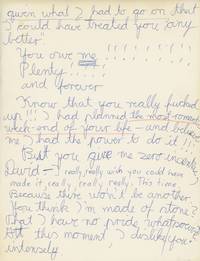 given what I had to go on that
I could have treated you any
better"
You owe me ! ! ! ! ! ! !
Plenty ! ! ! !
and forever
Know that you really fucked
up !!! I had planned the most romantic
week-end of your life — and believe
me I had the power to do it !!!
But you gave me zero
David — I really, really wish you could have
made it, really, really, really. This time.
Because there won't be another
You think I'm made of stone?
That I have no pride whatsoever?
At this moment, I dislike you
intensely